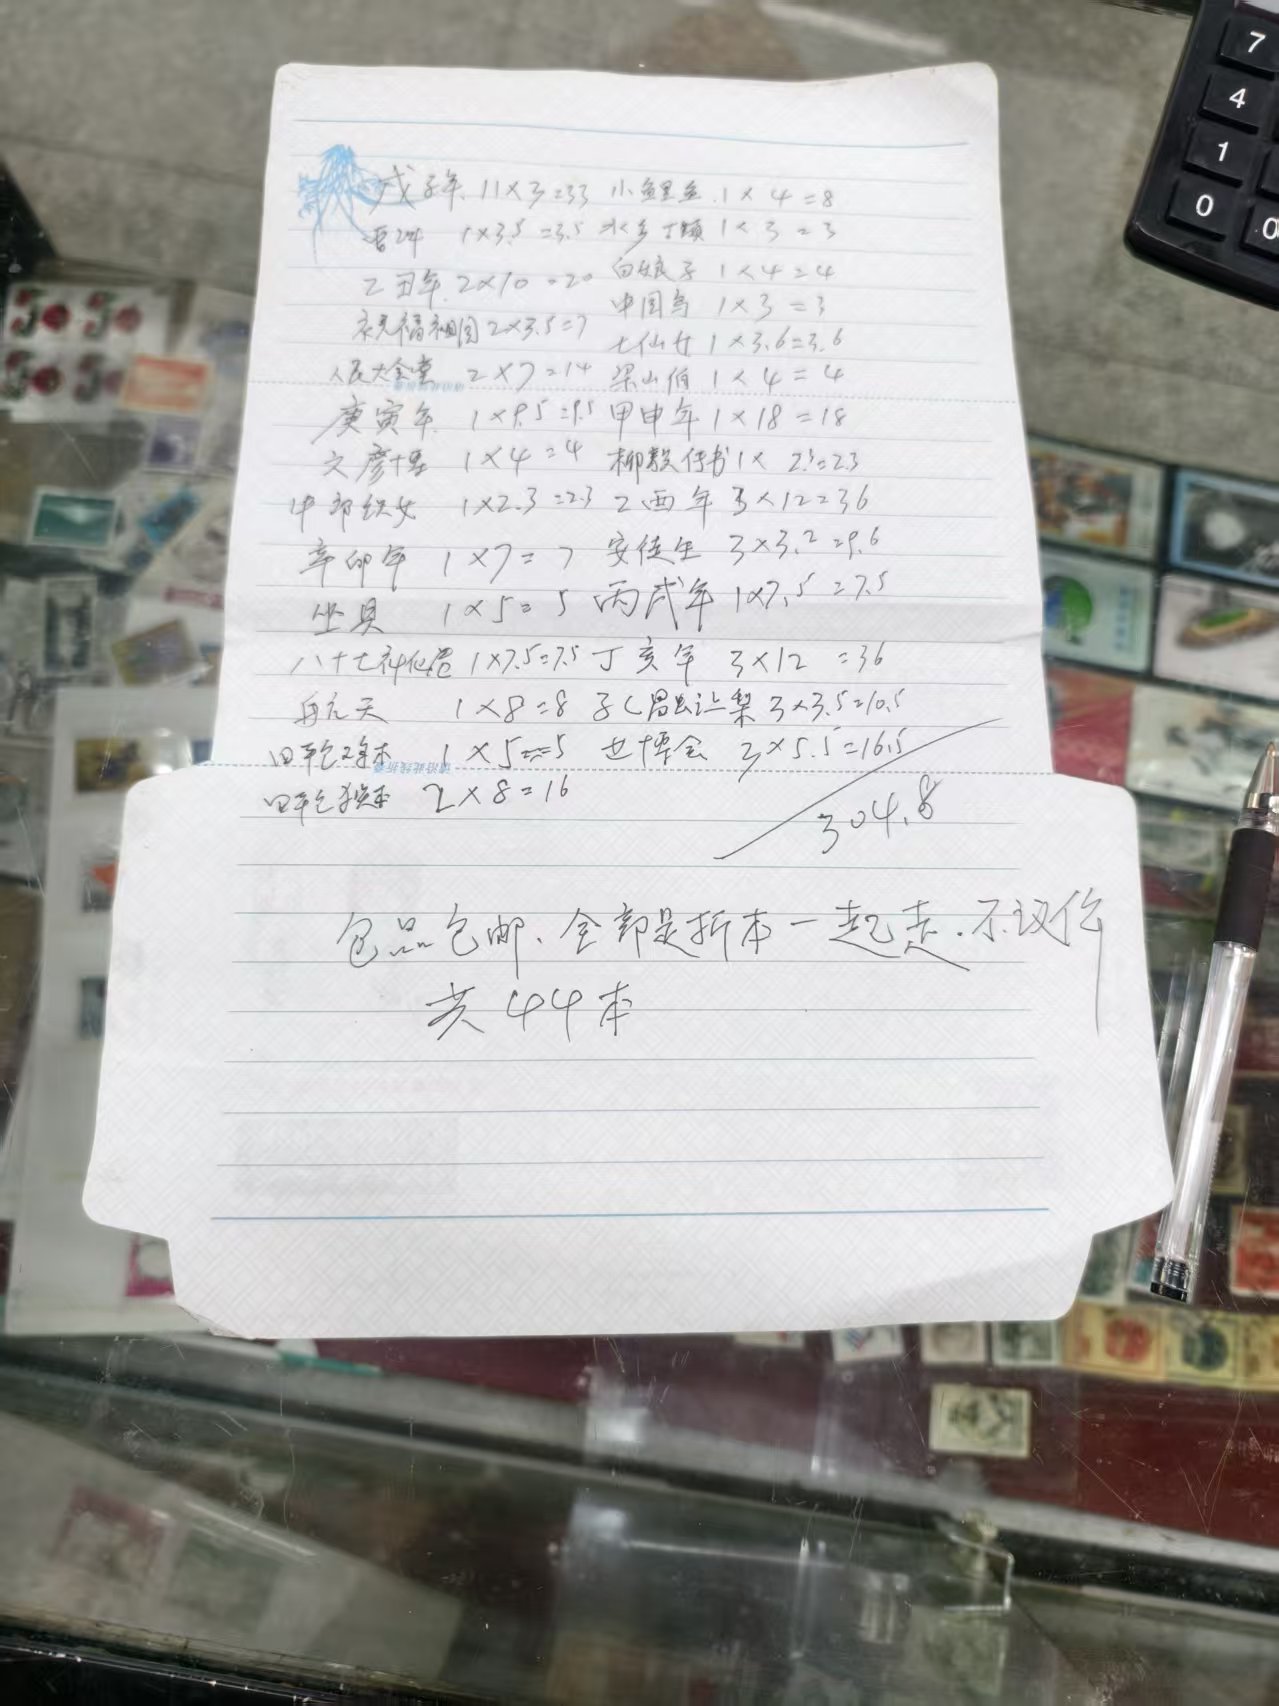 戊子年 11×3=33 小鲤鱼 1×4=8
1×3.5=3.5 水乡古镇 1×3=3
乙丑年 2×10=20 白娘子 1×4=4
祝福祖国 2×3.5=7 中国鸟 1×3=3
人民大会堂 2×7=14 七仙女 1×3.6=3.6
梁山伯 1×4=4
庚寅年 1×9.5=9.5 甲申年 1×18=18
文彦博 1×4=4 柳毅传书 1×2.3=2.3
牛郎织女 1×2.3=2.3 乙酉年 3×12=36
辛卯年 1×7=7 安徒生 3×3.2=9.6
生且 1×5=5 丙戌年 1×7.5=7.5
八十七神仙卷 1×7.5=7.5 丁亥年 3×12=36
航天 1×8=8 孔融让梨 3×3.5=10.5
四轮 1×5=5 世博会 3×5.5=16.5
四轮 2×8=16
304.8
包品包邮、全部是折本一起走.不议价
共44本
请沿此线折叠
7
4
1
0
0